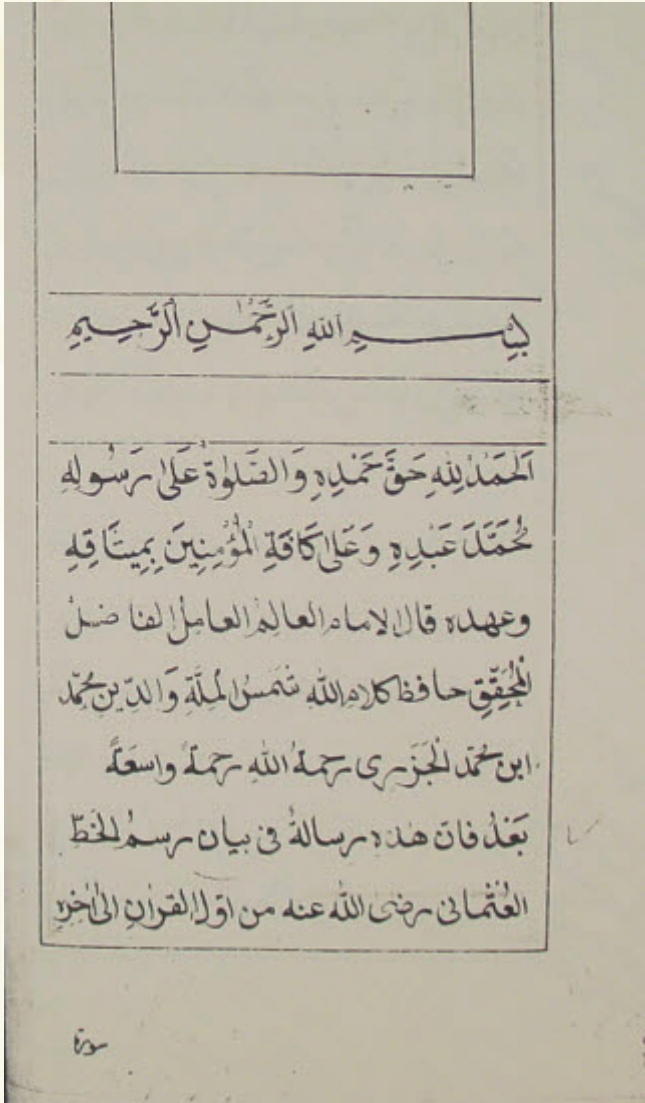 بِسْمِ اللهِ الرَّحْمٰنِ الرَّحِيمِ
اَلْحَمْدُ لِلّٰهِ حَقَّ حَمْدِهِ وَالصَّلٰوةُ عَلٰى رَسُولِهِ
مُحَمَّدٍ عَبْدِهِ وَعَلٰى كَافَّةِ الْمُؤْمِنِينَ بِمِيثَاقِهِ
وعهده قال الامام العالم العامل الفاضل
الْمُحَقِّقِ حافظ كلام الله شمس الْمِلَّةِ وَالدِّينِ محمّد
ابن محمّد الْجَزَرى رحمةُ اللهِ رحمةً واسعَةً
بَعْدُ فان هذه رسالةُ فى بيان رسمُ الخَطّ
العُثْمانى رضى الله عنه من اوّل القرانِ الى اٰخره
سورة